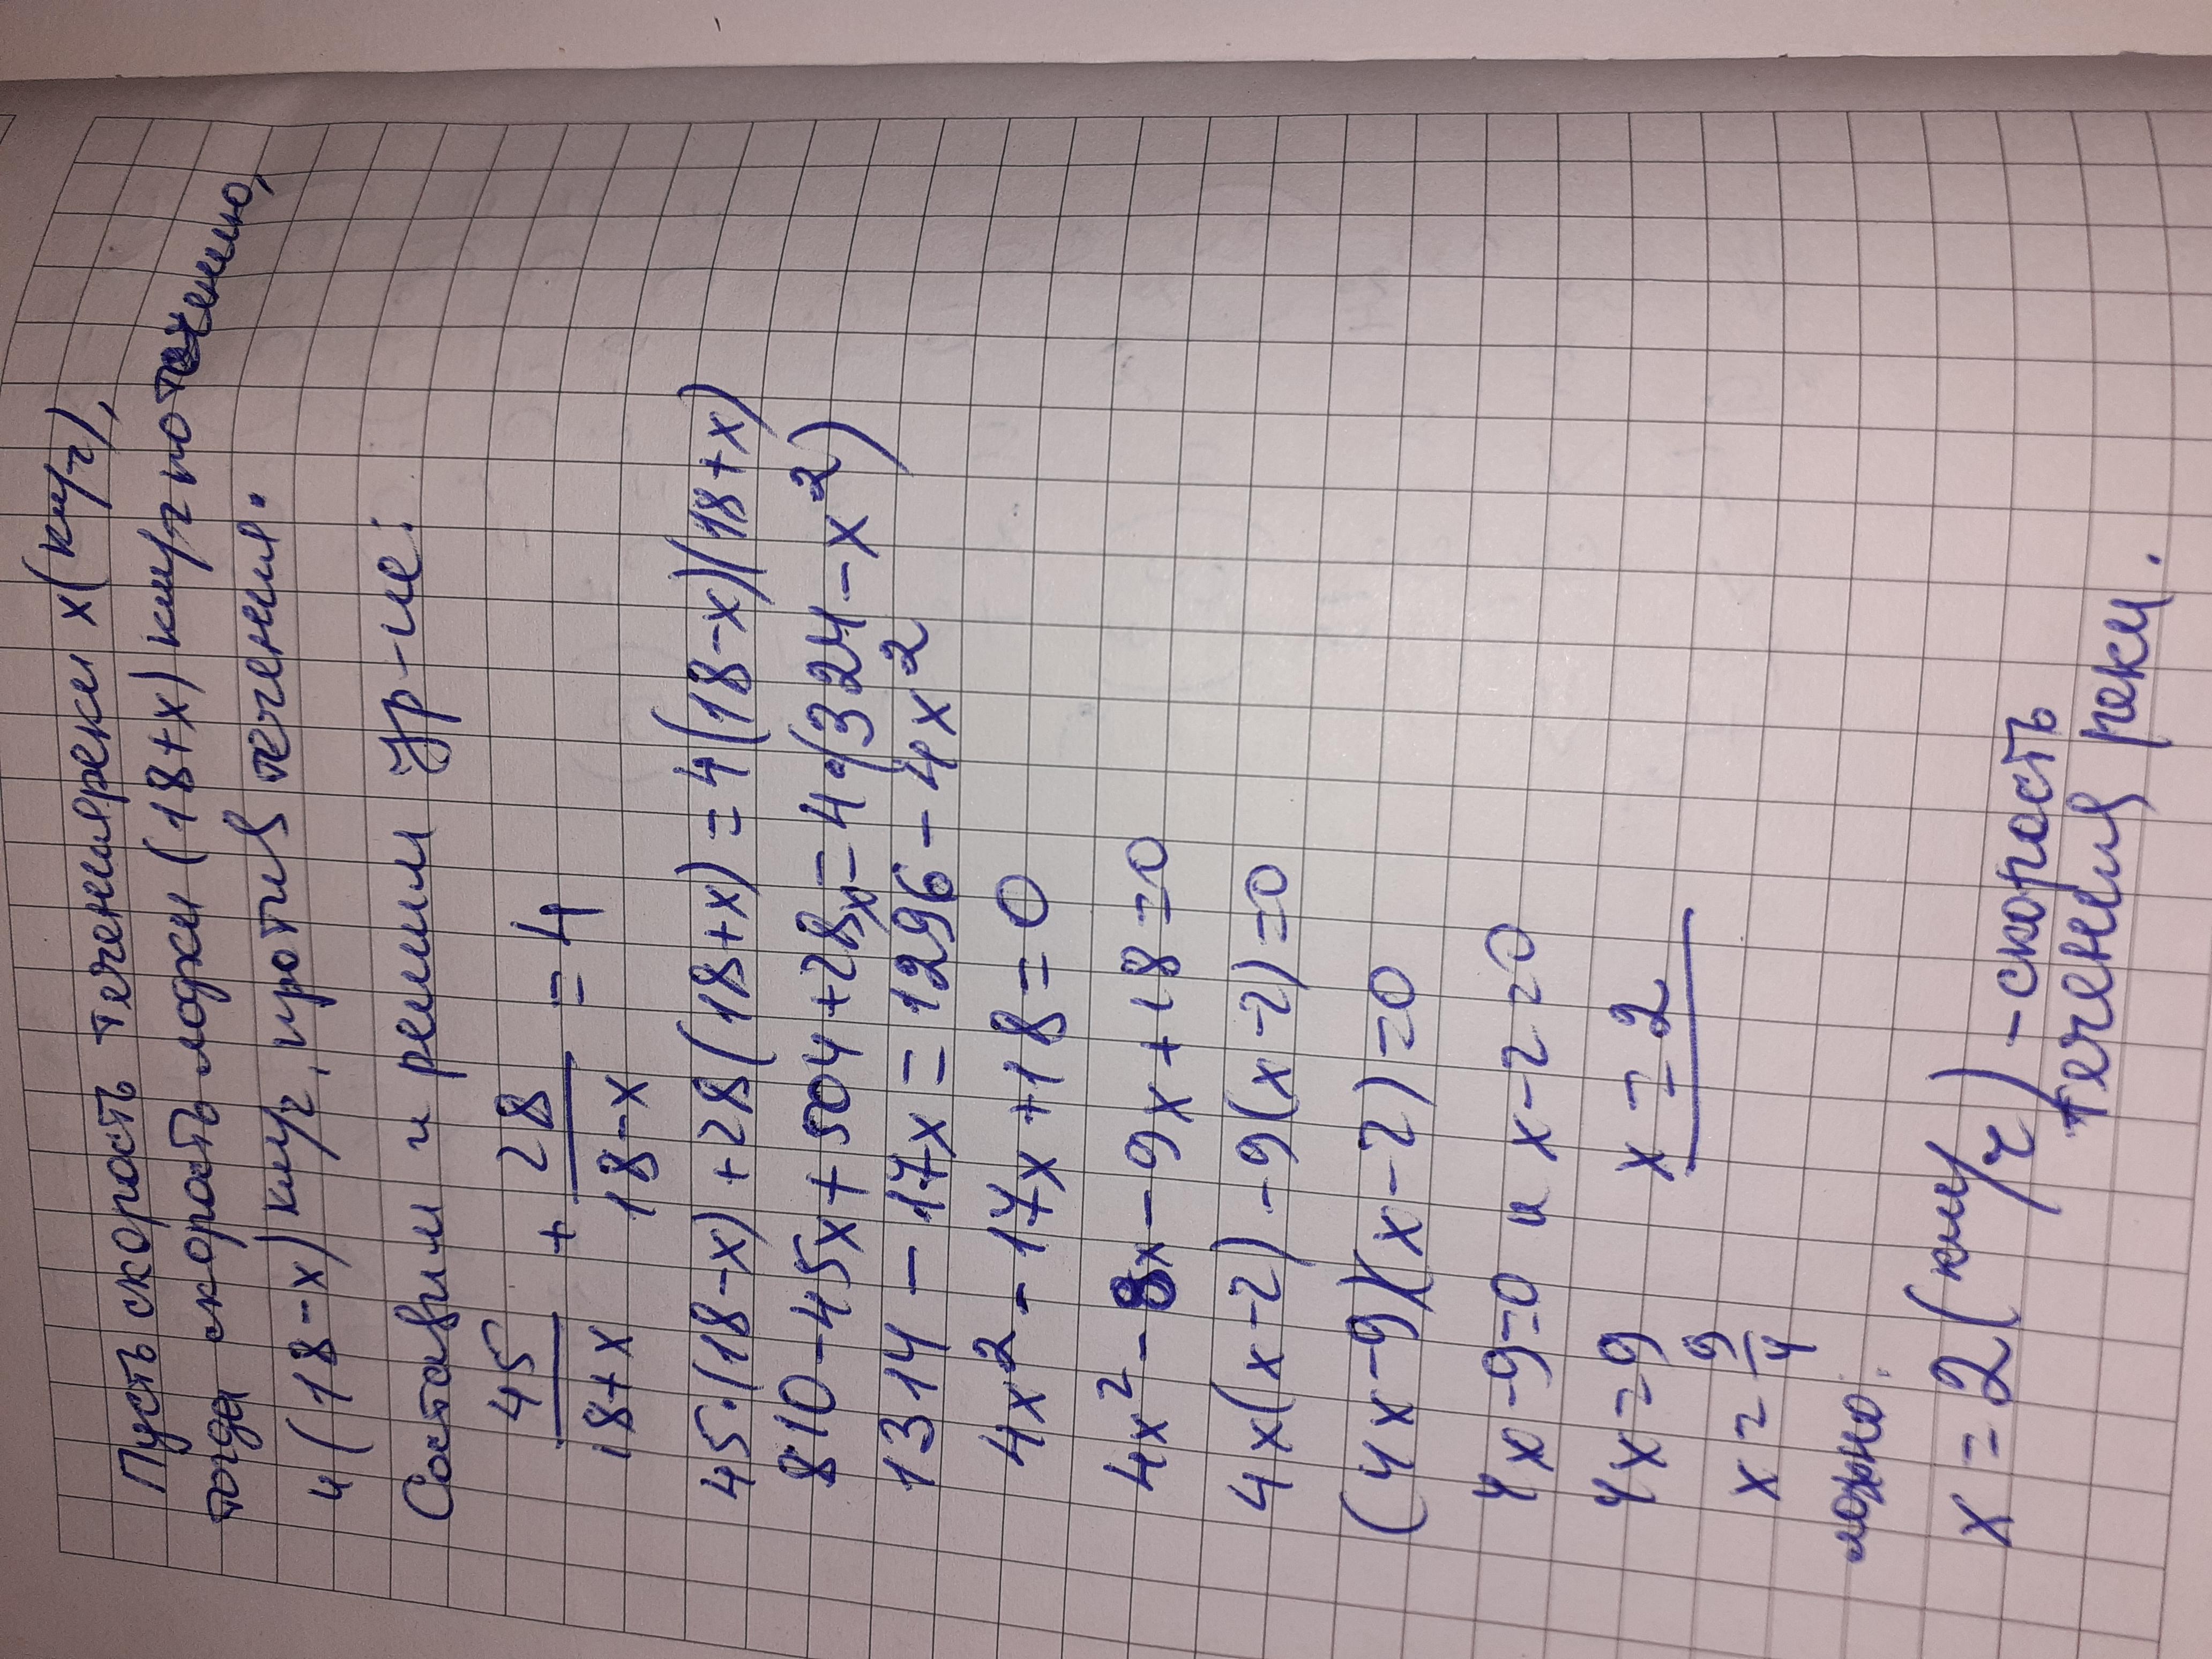 Пусть скорость течения реки x (км/ч),
тогда скорость лодки (18+x) км/ч по течению,
и (18-x) км/ч, против течения.
Составим и решим ур-ие:
45/(18+x) + 28/(18-x) = 4
45·(18-x)+28(18+x)=4(18-x)(18+x)
810-45x+504+28x=4·(324-x²)
1314-17x=1296-4x²
4x²-17x+18=0
4x²-8x-9x+18=0
4x(x-2)-9(x-2)=0
(4x-9)(x-2)=0
4x-9=0 и x-2=0
4x=9 x=2
x=9/4
ложно.
x=2(км/ч)-скорость
течения реки.